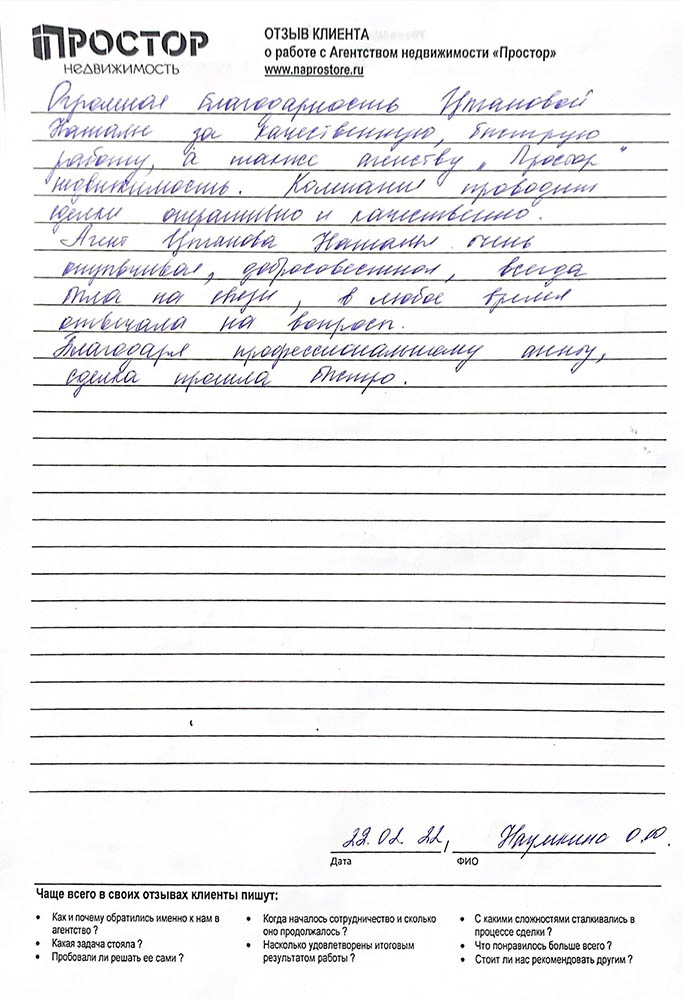 ПРОСТОР
НЕДВИЖИМОСТЬ
ОТЗЫВ КЛИЕНТА
о работе с Агентством недвижимости «Простор»
www.naprostore.ru
Огромная благодарность Цтановой
Наталье за качественную, быструю
работу, а также агенству „Простор"
недвижимость. Компания проводит
сделки оперативно и качественно.
Агент Цтанова Наталья очень
отзывчивая, добросовестная, всегда
была на связи, в любое время
отвечала на вопросы.
Благодаря профессиональному агенту,
сделка прошла быстро.
22.02.22, Наумкина О.Ю.
Дата ФИО
Чаще всего в своих отзывах клиенты пишут:
• Как и почему обратились именно к нам в агентство ?
• Какая задача стояла ?
• Пробовали ли решать ее сами ?
• Когда началось сотрудничество и сколько оно продолжалось ?
• Насколько удовлетворены итоговым результатом работы ?
• С какими сложностями сталкивались в процессе сделки ?
• Что понравилось больше всего ?
• Стоит ли нас рекомендовать другим ?